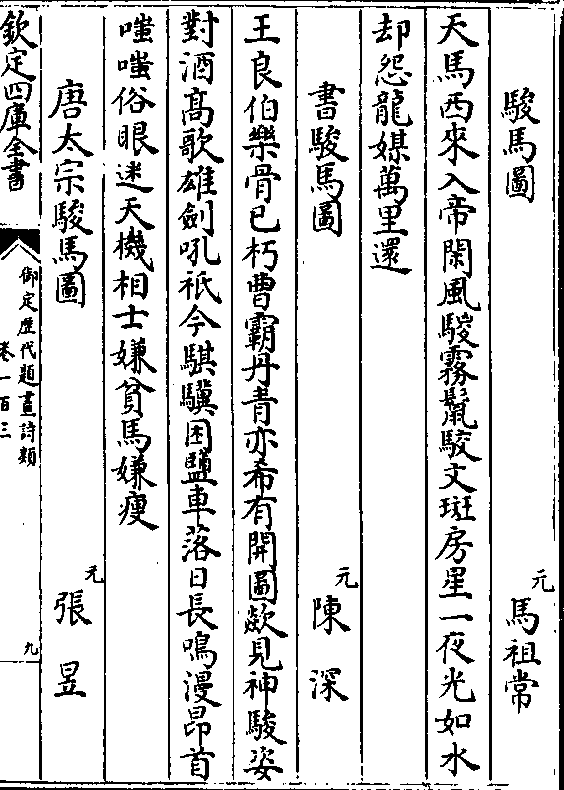 駿馬圖 元 馬祖常
天馬西來入帝閑風駿霧鬛駮文斑房星一夜光如水
却怨龍媒萬里還
書駿馬圖 元 陳深
王良伯樂骨已朽曹霸丹青亦希有開圖歘見神駿姿
對酒髙歌雄劍吼祇今騏驥困鹽車落日長鳴漫昂首
嗤嗤俗眼迷天機相士嫌貧馬嫌瘦
唐太宗駿馬圖 元 張昱
欽定四庫全書
御定歴代題畫詩類
卷一百三
九